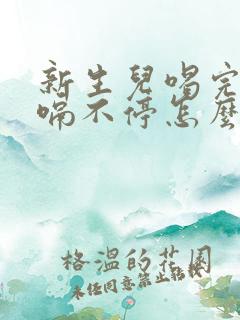 新生兒喝完
嗝不停怎麼
格溫的花園
未經同意禁止轉載